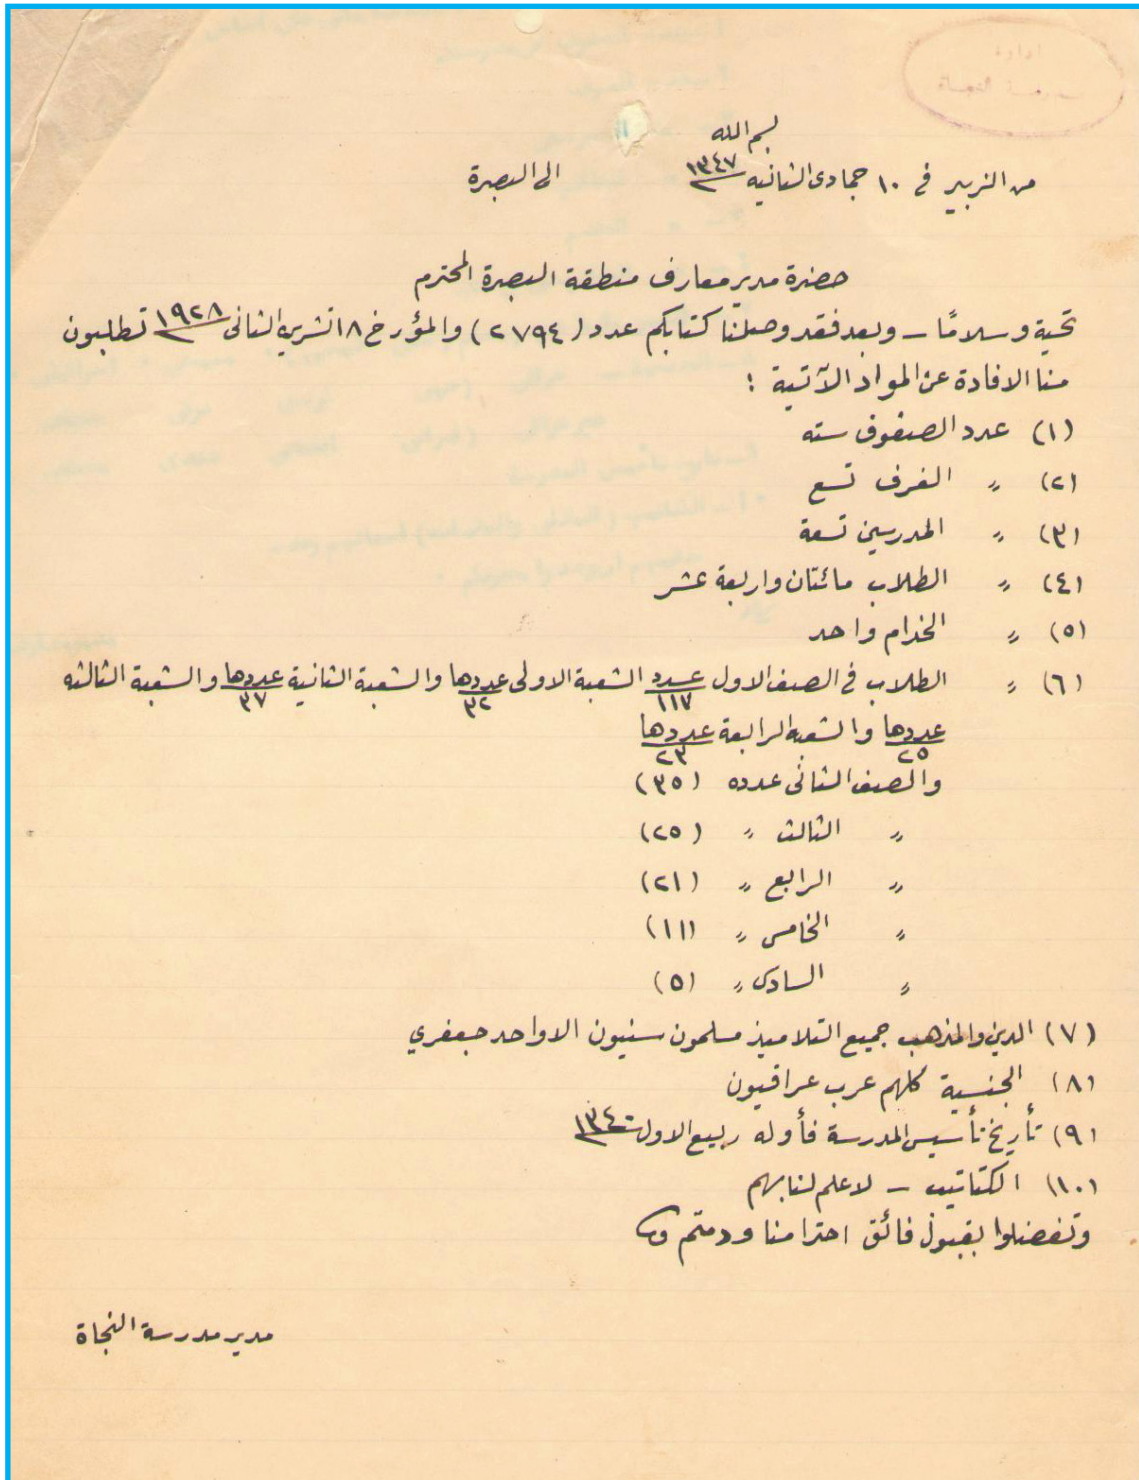 ادارة
مدرسة النجاة
بسم الله
من الزبير في ١٠ جمادى الثانيه ١٣٤٧ الى البصرة
حضرة مدير معارف منطقة البصرة المحترم
تحية وسلامًا – وبعد فقد وصلنا كتابكم عدد (٢٧٩٤) والمؤرخ ١٨ تشرين الثانى ١٩٢٨ تطلبون
منا الافادة عن المواد الآتية :
(١) عدد الصفوف سته
(٢) 〃 الغرف تسع
(٣) 〃 المدرسين تسعة
(٤) 〃 الطلاب مائتان واربعة عشر
(٥) 〃 الخدام واحد
(٦) 〃 الطلاب في الصف الاول عدد ١١٧ الشعبة الاولى عددها ٣٢ والشعبة الثانية عددها ٣٧ والشعبة الثالثه
عددها ٢٥ والشعبه الرابعة عددها ٢٣
والصف الثانى عدده (٣٥)
〃 الثالث 〃 (٢٥)
〃 الرابع 〃 (٢١)
〃 الخامس 〃 (١١)
〃 السادس 〃 (٥)
(٧) الدين والمذهب جميع التلاميذ مسلمون سنيون الا واحد جعفري
(٨) الجنسية كلهم عرب عراقيون
(٩) تأريخ تأسيس المدرسة فأوله ربيع الاول ١٣٤٠
(١٠) الكتاتيب – لا علم لنا بهم
وتفضلوا بقبول فائق احترامنا ودمتم
مدير مدرسة النجاة